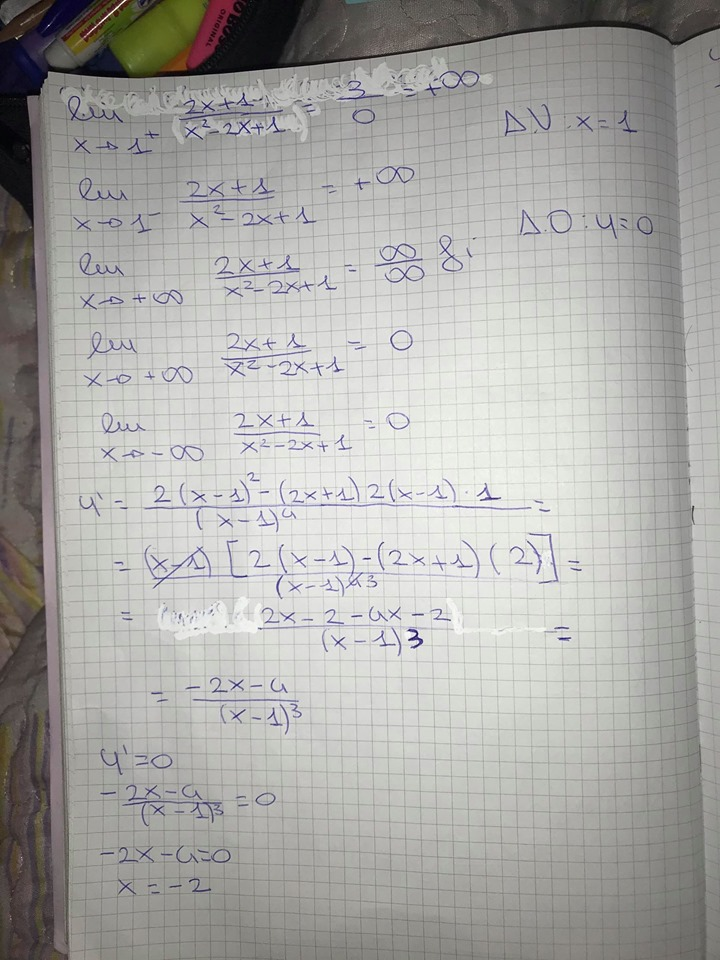 ORIGINAL
lim x→1⁺ (2x+1)/(x²-2x+1) = 3/0 = +∞
Δ.V. x=1
lim x→1⁻ (2x+1)/(x²-2x+1) = +∞
Δ.O: y=0
lim x→+∞ (2x+1)/(x²-2x+1) = ∞/∞ f.i
lim x→+∞ (2x+1)/(x²-2x+1) = 0
lim x→-∞ (2x+1)/(x²-2x+1) = 0
y' = (2(x-1)² - (2x+1) 2(x-1)·1)/(x-1)⁴ =
= (x-1) [2(x-1) - (2x+1)(2)]/(x-1)³ =
= (2x-2-4x-2)/(x-1)³ =
= (-2x-4)/(x-1)³
y'=0
(-2x-4)/(x-1)³ = 0
-2x-4=0
x=-2